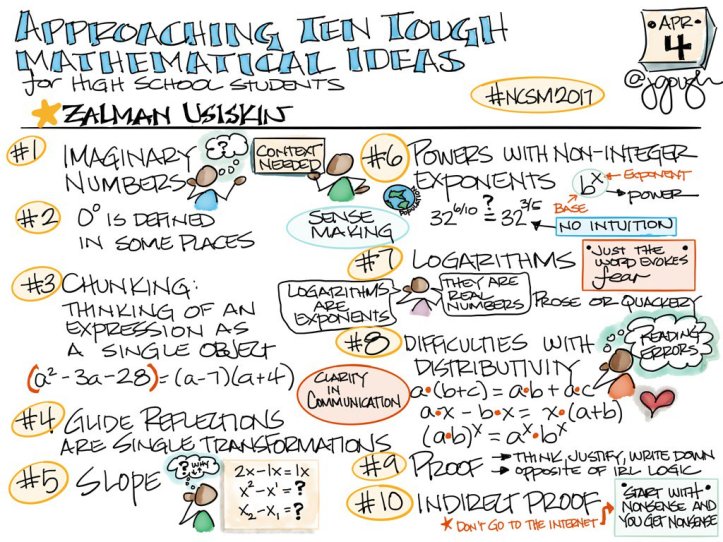 APPROACHING TEN TOUGH
MATHEMATICAL IDEAS
for HIGH SCHOOL STUDENTS
ZALMAN USISKIN
•APR•
4
@jgough
#NCSM2017
#1 IMAGINARY
NUMBERS
?
CONTEXT
NEEDED
#2 0° IS DEFINED
IN SOME PLACES
SENSE
MAKING
#3 CHUNKING:
THINKING OF AN
EXPRESSION AS
A SINGLE OBJECT
(a² - 3a - 28) = (a-7)(a+4)
LOGARITHMS
ARE
EXPONENTS
CLARITY
IN
COMMUNICATION
#4 GLIDE REFLECTIONS
ARE SINGLE TRANSFORMATIONS
#5 SLOPE
? WHY
2x-1x=1x
x²-x¹=?
x₂-x₁=?
#6 POWERS WITH NON-INTEGER
EXPONENTS
bˣ
EXPONENT
POWER
BASE
32^6/10 ?= 32^3/5
NO INTUITION
#7 LOGARITHMS
•JUST THE•
WORD EVOKES
fear
THEY ARE
REAL
NUMBERS
PROSE OR QUACKERY
#8 DIFFICULTIES WITH
DISTRIBUTIVITY
READING
ERRORS
a•(b+c) = a•b + a•c
a•x - b•x = x•(a+b)
(a•b)ˣ = aˣ•bˣ
#9 PROOF → THINK, JUSTIFY, WRITE DOWN
→ OPPOSITE OF IRL LOGIC
#10 INDIRECT PROOF
*DON'T GO TO THE INTERNET
•START WITH•
NONSENSE AND
YOU GET NONSENSE